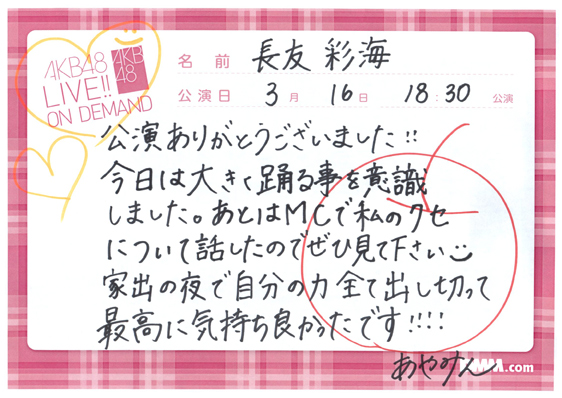 AKB48
LIVE!!
ON DEMAND
AKB
48
名前 長友 彩海
公演日 3月 16日 18:30 公演
公演ありがとうございました!!
今日は大きく踊る事を意識
しました。あとはMCで私のクセ
について話したのでぜひ見て下さい
家出の夜で自分の力全て出し切って
最高に気持ち良かったです!!!!
あやみん
DMM.com